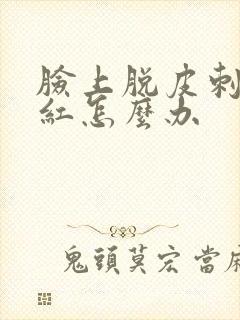 臉上脱皮刺
紅怎麼办
鬼頭莫宏當麻